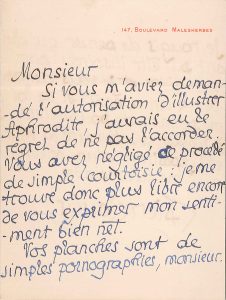 147, BOULEVARD MALESHERBES
Monsieur
Si vous m'aviez deman-
-dé l'autorisation d'illustrer
Aphrodite, j'aurais eu le
regret de ne pas l'accorder.
Vous avez négligé ce procédé
de simple courtoisie : je me
trouve donc plus libre encore
de vous exprimer mon senti-
-ment bien net.
Vos planches sont de
simples pornographies, monsieur.